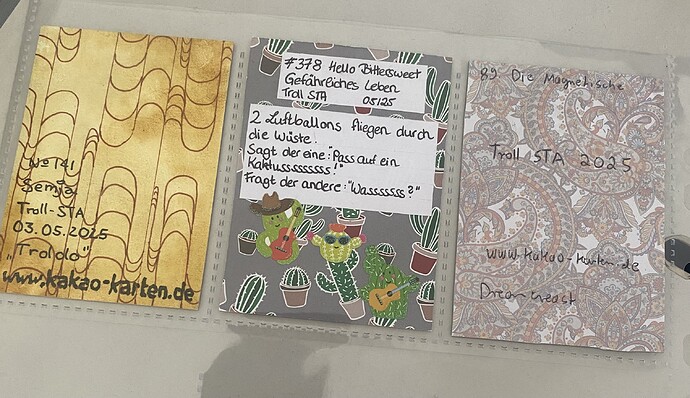 No 141
Semja
Troll-STA
03.05.2025
„Trololo"
www.kakao-karten.de
#378 Hello Bittersweet
Gefährliches Leben
Troll STA 05/25
2 Luftballons fliegen durch
die Wüste.
Sagt der eine: "Pass auf ein
Kaktusssssssss!"
Fragt der andere: "Wasssssss?"
89 Die Magnetische
Troll STA 2025
www.kakao-karten.de